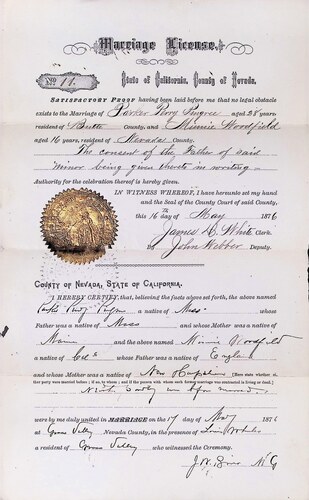 Marriage License.
No. 11. State of California, County of Nevada.
SATISFACTORY PROOF having been laid before me that no legal obstacle
exists to the Marriage of Parker Perry aged 28 years
resident of Butte County, and Minnie Woodfield
aged 16 years, resident of Nevada County.
The consent of the Father of said
minor being given thereto in writing.
Authority for the celebration thereof is hereby given.
IN WITNESS WHEREOF, I have hereunto set my hand
and the Seal of the County Court of said County,
this 16 day of May 1876
James D. White Clerk
By John Webber Deputy.
COUNTY OF NEVADA, STATE OF CALIFORNIA.
I HEREBY CERTIFY, that, believing the facts above set forth, the above named
a native of Mass. whose
Father was a native of Mass and whose Mother was a native of
Maine and the above named Minnie Woodfield
a native of Cal whose Father was a native of England
and whose Mother was a native of New Hampshire (Here state whether
party were married before; if so, to whom; and if the person with whom such former marriage was contracted is living or dead.)
were by me duly united in MARRIAGE on the 17 day of May 1876
at Grass Valley Nevada County, in the presence of
a resident of Grass Valley who witnessed the Ceremony.